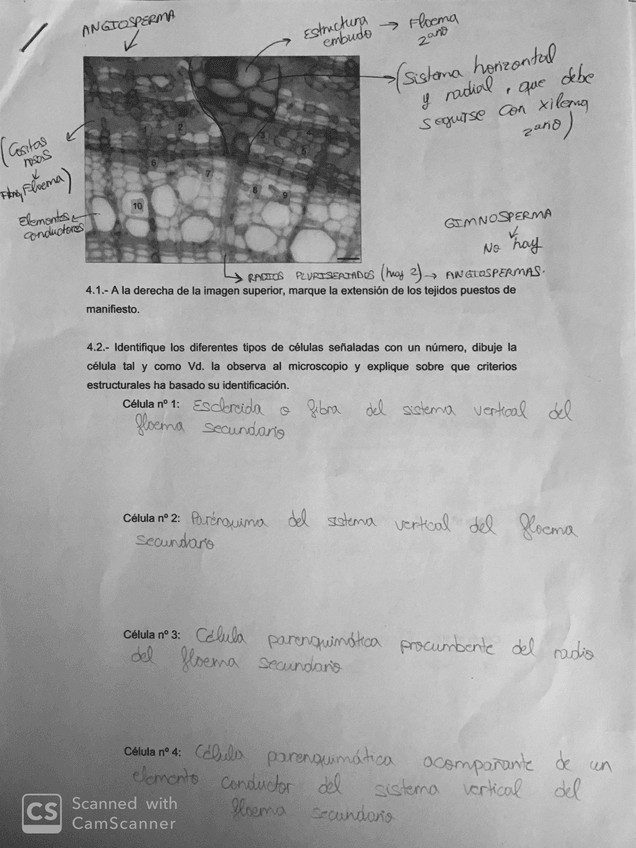 ANGIOSPERMA
Estructura embudo → Floema 2ario
(Sistema horizontal
y radial, que debe
seguirse con xilema
2ario)
(Cositas
rosas
Fibra, Floema)
Elementos
conductores
1
2
5
6
7
8
9
10
GIMNOSPERMA
No hay
RADIOS PLURISERIADOS (hay 2) → ANGIOSPERMAS.
4.1.- A la derecha de la imagen superior, marque la extensión de los tejidos puestos de
manifiesto.
4.2.- Identifique los diferentes tipos de células señaladas con un número, dibuje la
célula tal y como Vd. la observa al microscopio y explique sobre que criterios
estructurales ha basado su identificación.
Célula nº 1: Esclereida o fibra del sistema vertical del
floema secundario
Célula nº 2: Parénquima del sistema vertical del floema
secundario
Célula nº 3: Célula parenquimática procumbente del radio
del floema secundario
Célula nº 4: Célula parenquimática acompañante de un
elemento conductor del sistema vertical del
floema secundario
CS Scanned with
CamScanner